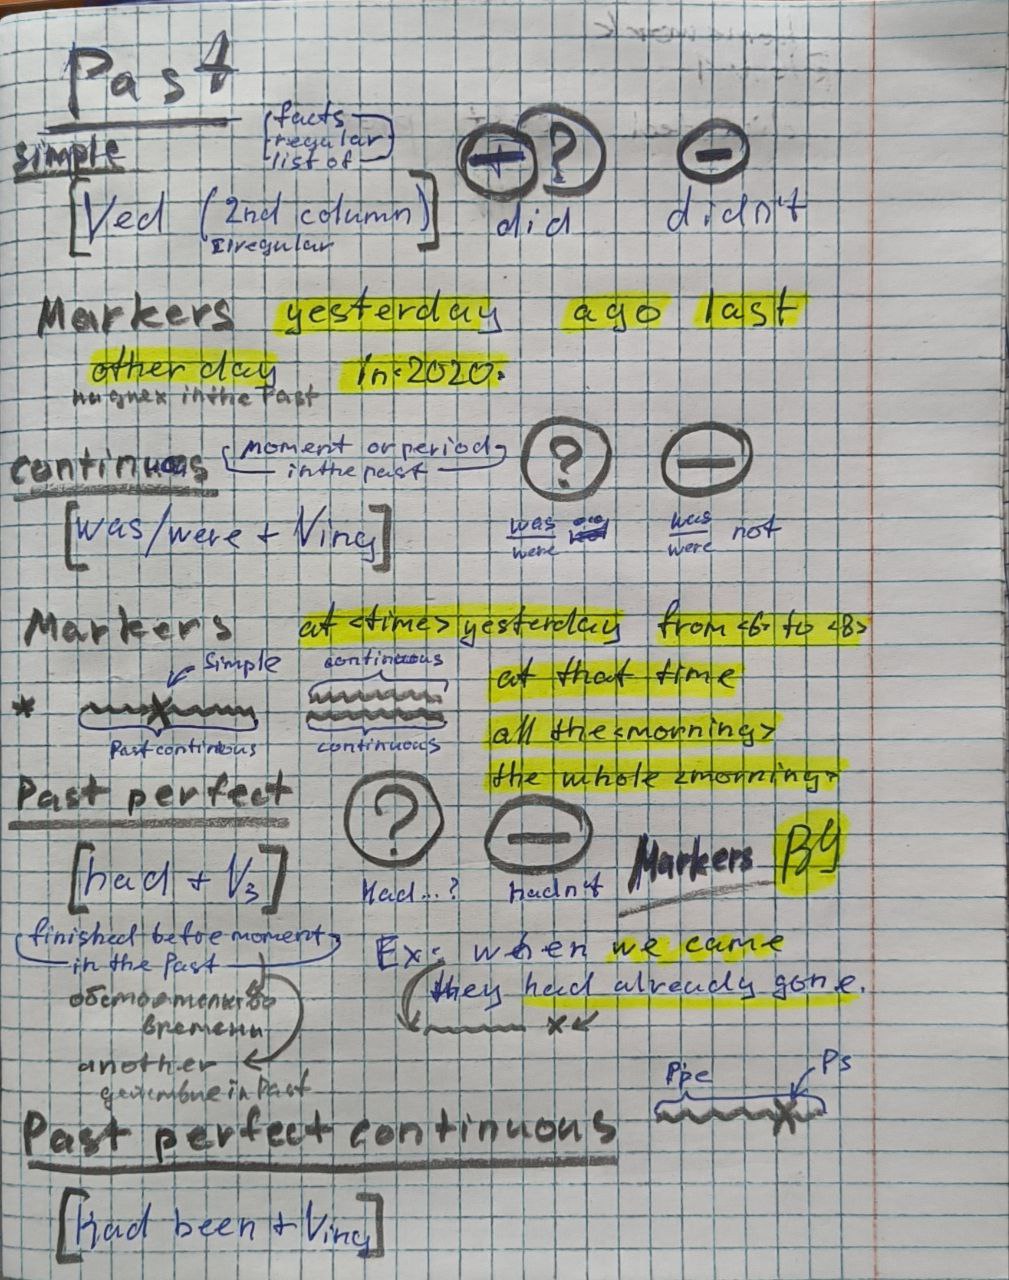 Past
simple
facts
regular
list of
+ ? −
[Ved (2nd column)]
Irregular
did didn't
Markers yesterday ago last
other day in <2020>
in the Past
continuous
moment or period
in the past
? −
[was/were + Ving]
was
were
was
were not
Markers at <time> yesterday from <6> to <8>
* Simple
Past continuous
continuous
continuous
at that time
all the <morning>
the whole <morning>
Past perfect
? −
[had + V3]
Had...? hadn't
Markers By
finished befoe moment
in the Past
обстоятельство
времени
another
действие in Past
Ex: when we came
they had already gone.
Ppc Ps
Past perfect continuous
[had been + Ving]